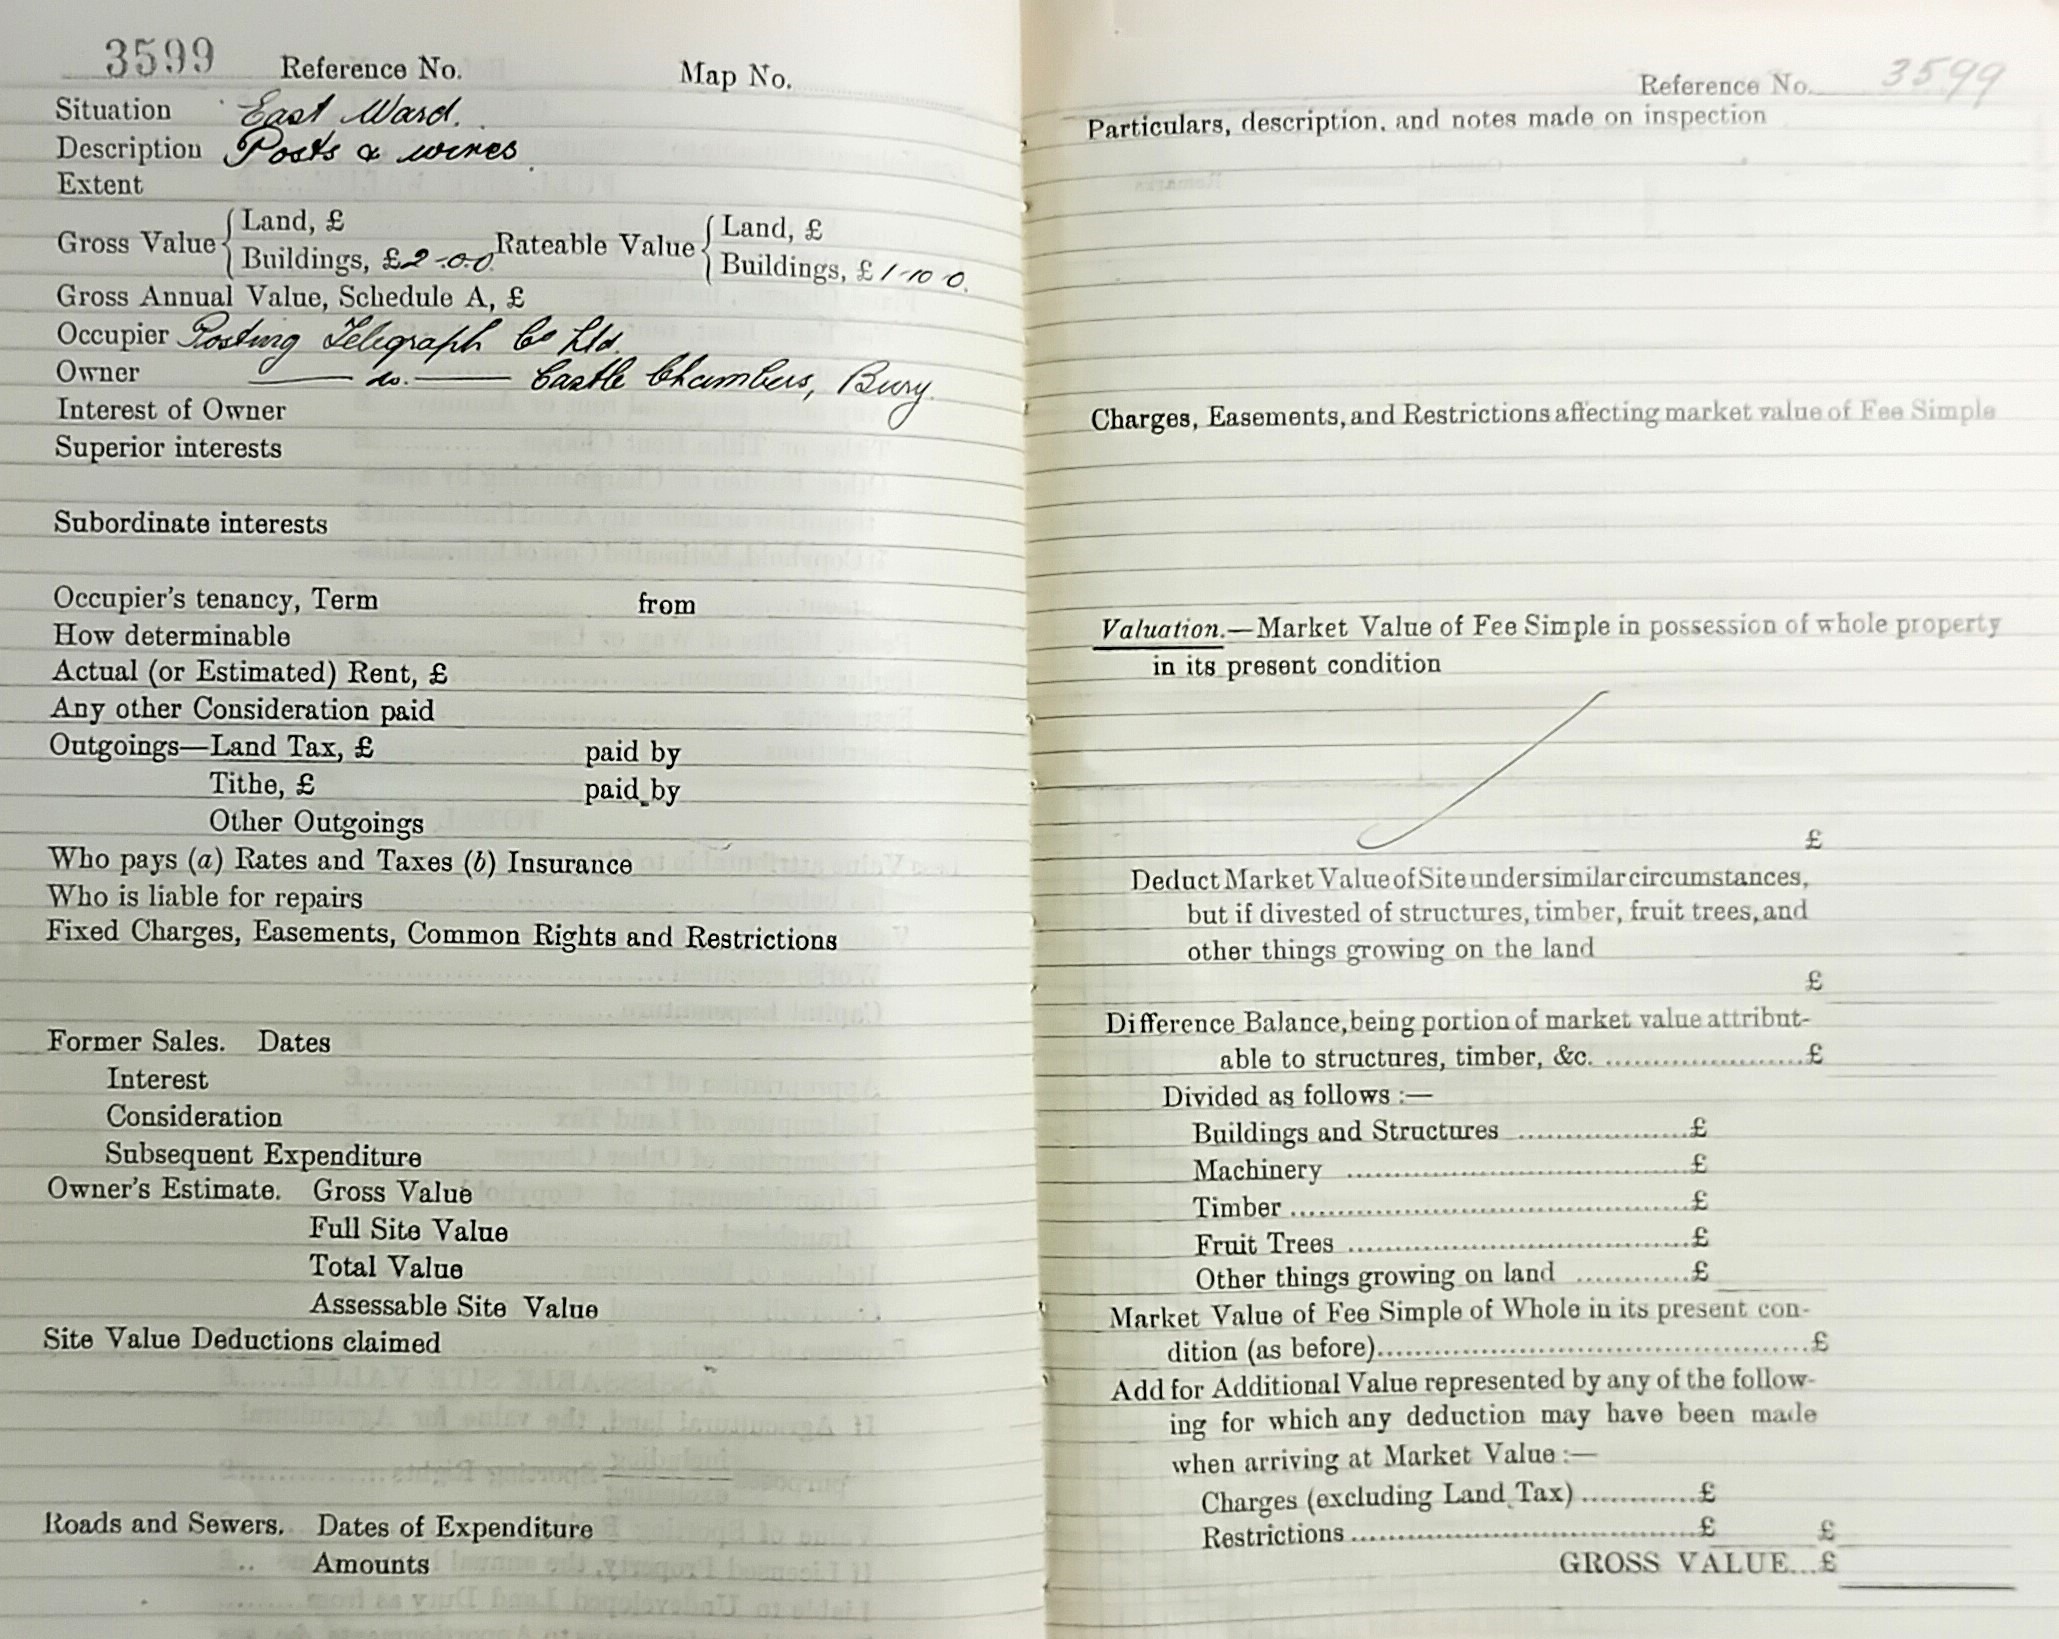 3599 Reference No. Map No.
Situation East Ward.
Description Posts & wires
Extent
Gross Value { Land, £ Rateable Value { Land, £
Buildings, £2-0-0 Buildings, £1-10-0.
Gross Annual Value, Schedule A, £
Occupier Posting Telegraph Co Ltd.
Owner — do. — Castle Chambers, Bury.
Interest of Owner
Superior interests
Subordinate interests
Occupier's tenancy, Term from
How determinable
Actual (or Estimated) Rent, £
Any other Consideration paid
Outgoings—Land Tax, £ paid by
Tithe, £ paid by
Other Outgoings
Who pays (a) Rates and Taxes (b) Insurance
Who is liable for repairs
Fixed Charges, Easements, Common Rights and Restrictions
Former Sales. Dates
Interest
Consideration
Subsequent Expenditure
Owner's Estimate. Gross Value
Full Site Value
Total Value
Assessable Site Value
Site Value Deductions claimed
Roads and Sewers. Dates of Expenditure
Amounts
Reference No. 3599
Particulars, description, and notes made on inspection
Charges, Easements, and Restrictions affecting market value of Fee Simple
Valuation.—Market Value of Fee Simple in possession of whole property
in its present condition
£
Deduct Market Value of Site under similar circumstances,
but if divested of structures, timber, fruit trees, and
other things growing on the land
£
Difference Balance, being portion of market value attribut-
able to structures, timber, &c. ........................£
Divided as follows :—
Buildings and Structures ....................£
Machinery ........................................£
Timber ...............................................£
Fruit Trees ........................................£
Other things growing on land .............£
Market Value of Fee Simple of Whole in its present con-
dition (as before)..................................................£
Add for Additional Value represented by any of the follow-
ing for which any deduction may have been made
when arriving at Market Value :—
Charges (excluding Land Tax) .............£
Restrictions .......................................£ £
GROSS VALUE...£